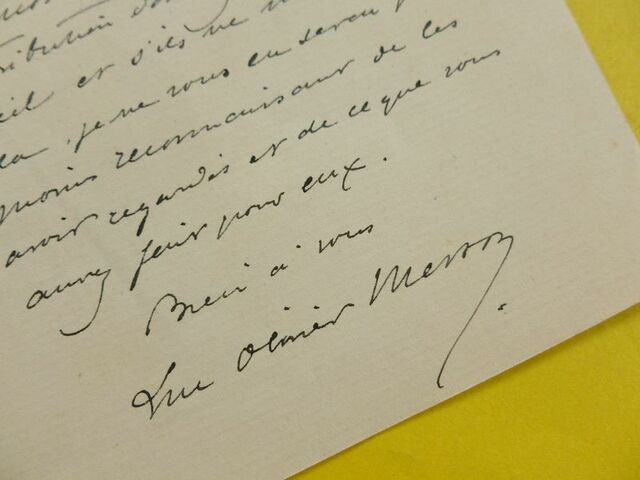 et s'ils ne
je ne vous en serai
moins reconnaissant de les
avoir regardés et de ce que vous
aurez fait pour eux.
Bien à vous
Luc Olivier Merson